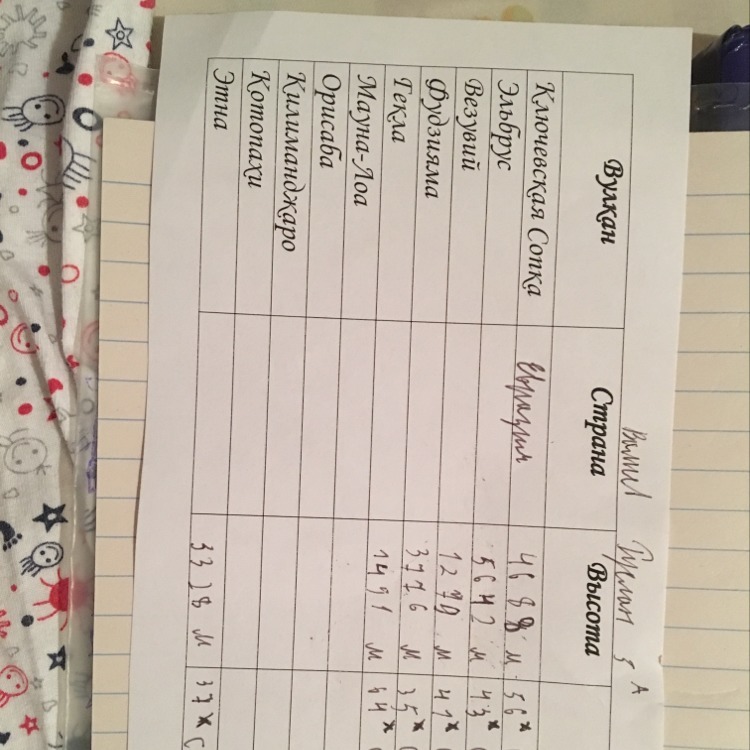 5 А
Вулкан Страна Высота
Ключевская Сопка Евразия 4688 м 56*
Эльбрус 5642 м 43*
Везувий 1279 м 41*
Фудзияма 3776 м 35*
Гекла 1491 м 64*
Мауна-Лоа
Орисаба
Килиманджаро
Котопахи
Этна 3328 м 37* С